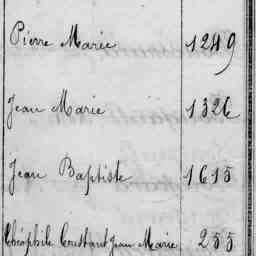 Pierre Marie 1249
Jean Marie 1326
Jean Baptiste 1615
Théophile Constant Jean Marie 255